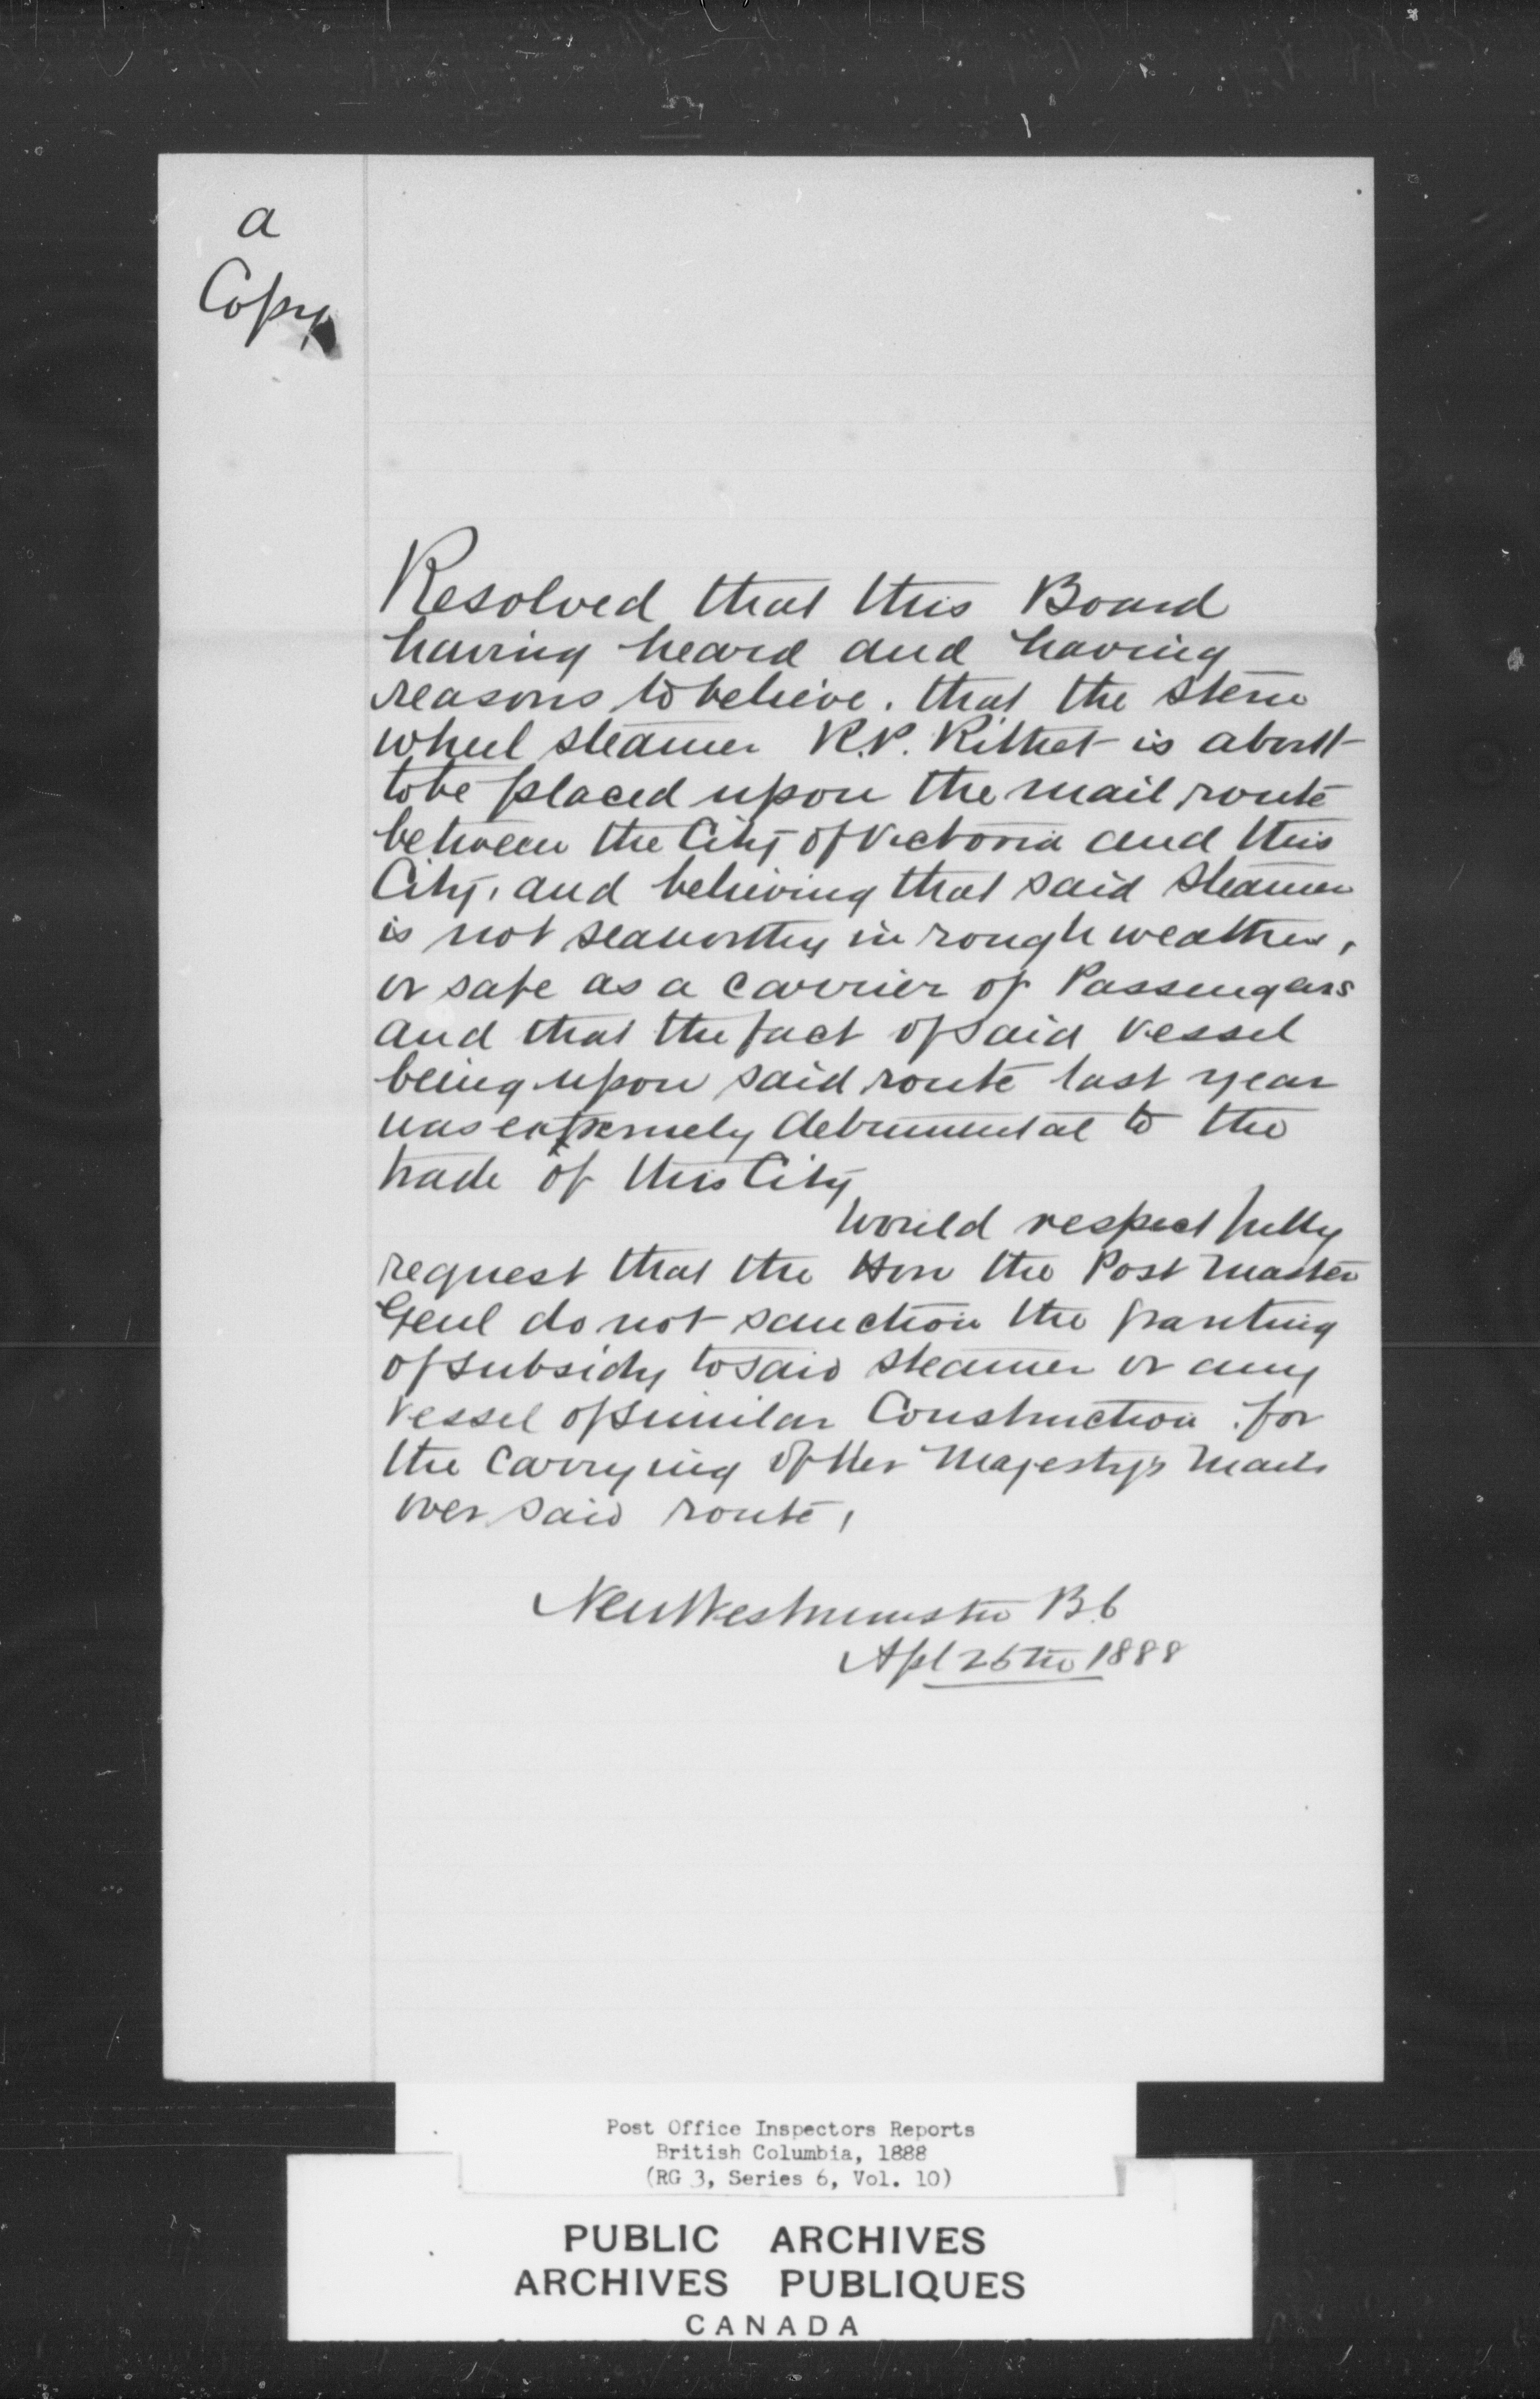 a
Copy
Resolved that this Board
having heard and having
reasons to believe. that the Stern
wheel steamer R.P. Rithet is about
to be placed upon the mail route
between the City of Victoria and this
City, and believing that said Steamer
is not seaworthy in rough weather,
or safe as a carrier of Passengers
and that the fact of said vessel
being upon said route last year
was extremely detrimental to the
trade of this City
would respectfully
request that the Hon the Post Master
Genl do not sanction the granting
of subsidy to said steamer or any
vessel of similar Construction for
the Carrying of Her Majesty's Mails
over said route,
New Westminster B.C
Apl 26th 1888
Post Office Inspectors Reports
British Columbia, 1888
(RG 3, Series 6, Vol. 10)
PUBLIC ARCHIVES
ARCHIVES PUBLIQUES
CANADA